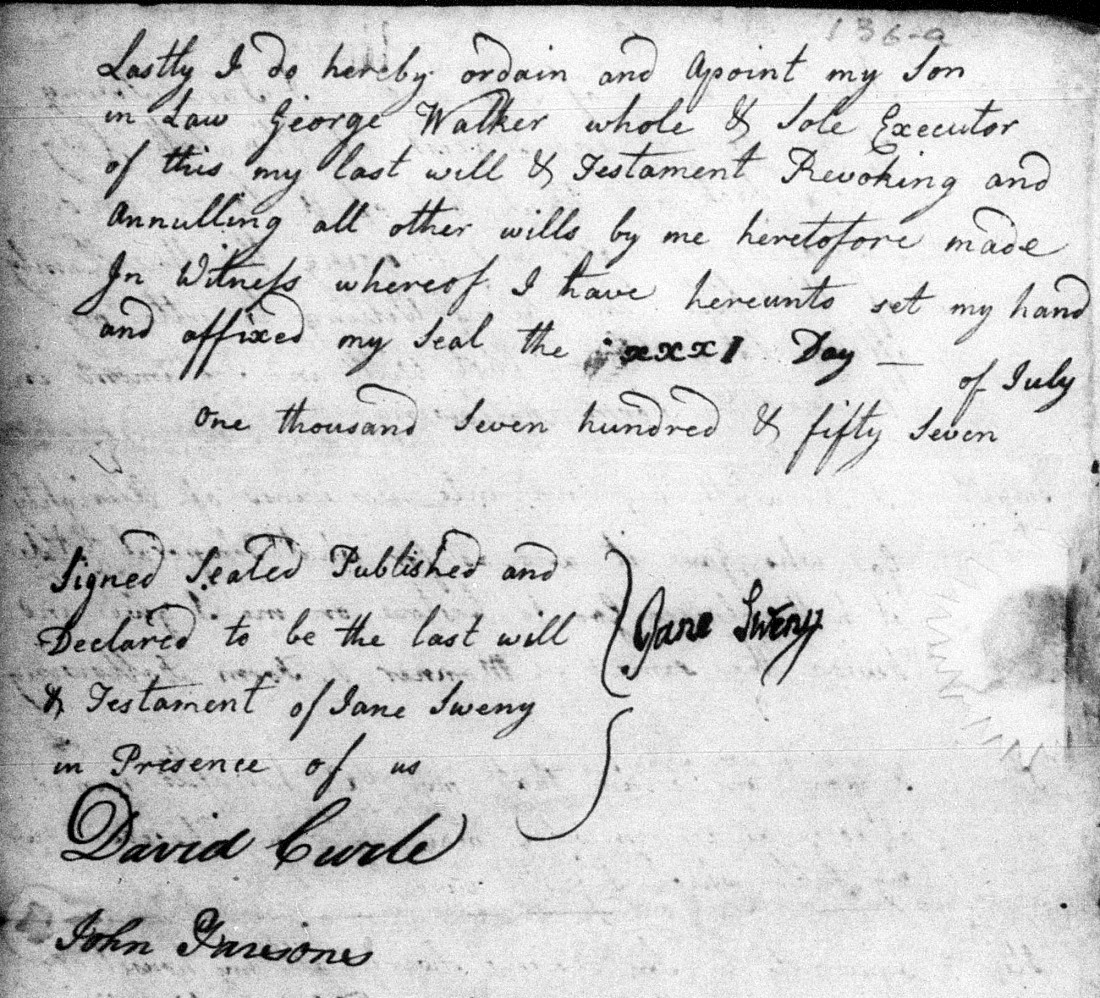 136-a
Lastly I do hereby ordain and Apoint my Son
in Law George Walker whole & Sole Executor
of this my last will & Testament Revoking and
Annulling all other wills by me heretofore made
In Witness whereof I have hereunto set my hand
and affixed my Seal the xxxI Day — of July
One thousand Seven hundred & fifty Seven
Signed Sealed Published and
Declared to be the last will
& Testament of Jane Sweny
in Presence of us
Jane Sweny
David Curle
John